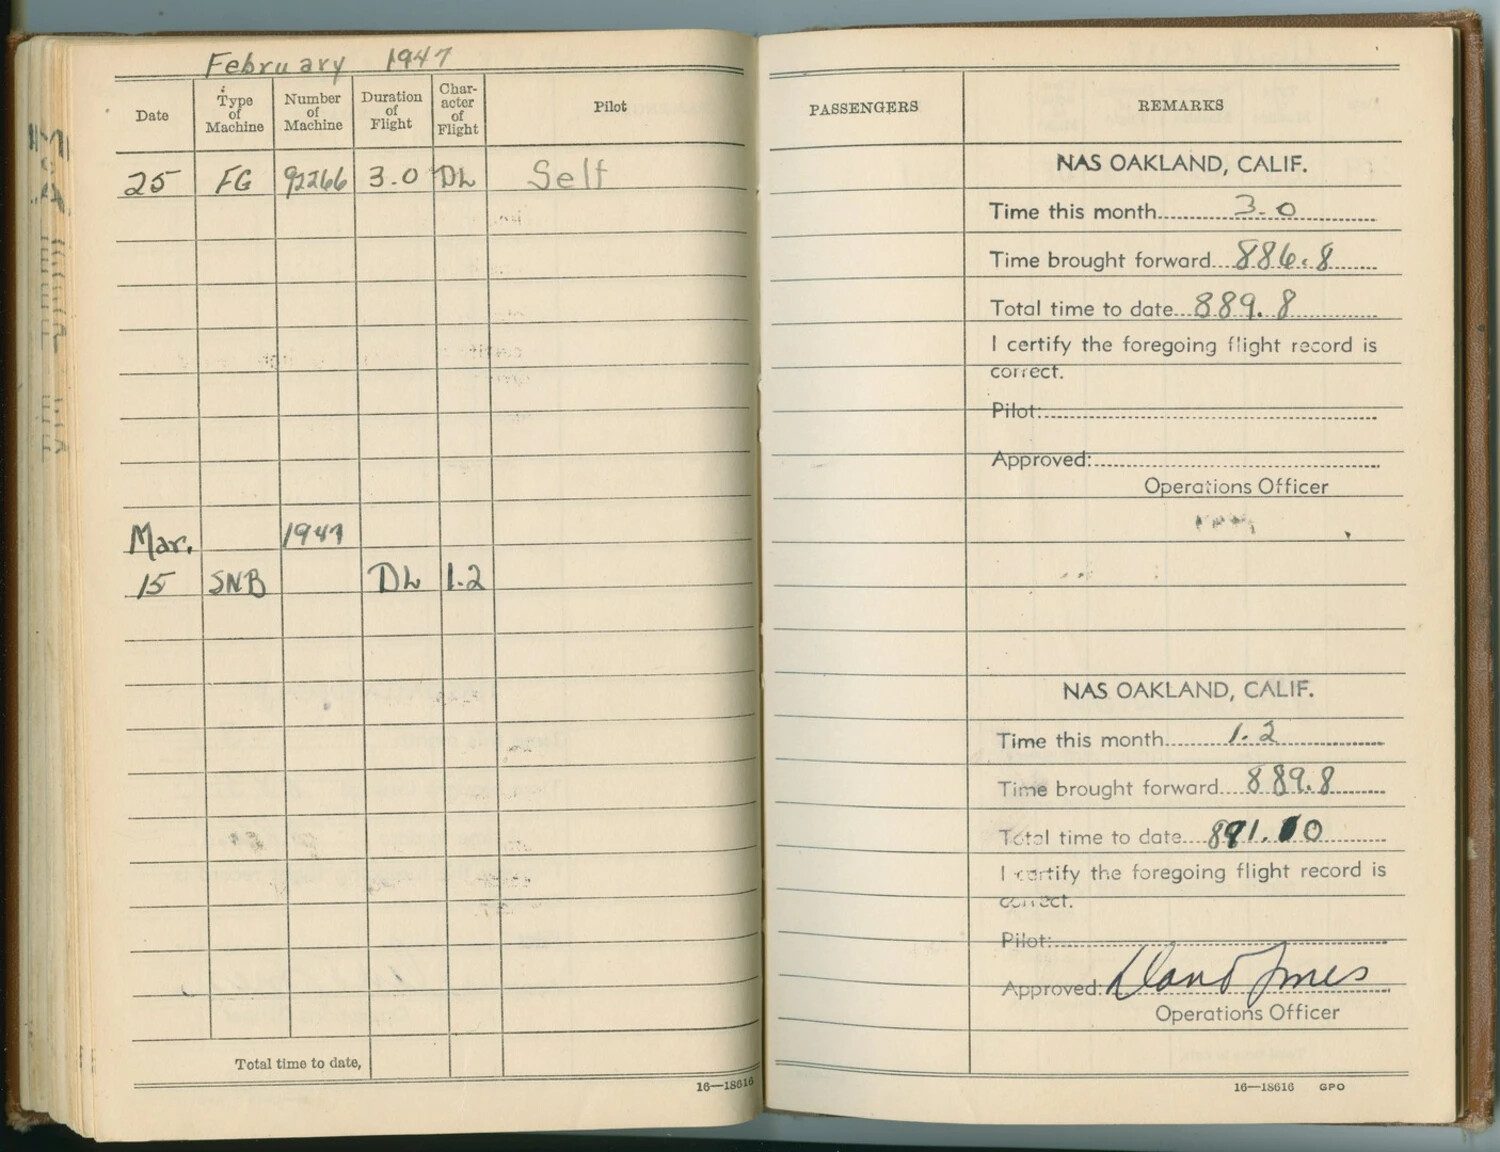 February 1947
Date Type of Machine Number of Machine Duration of Flight Char-acter of Flight Pilot
25 FG 92266 3.0 DL Self
Mar. 1947
15 SNB DL 1.2
Total time to date,
16—18616
PASSENGERS REMARKS
NAS OAKLAND, CALIF.
Time this month 3.0
Time brought forward 886.8
Total time to date 889.8
I certify the foregoing flight record is
correct.
Pilot:
Approved:
Operations Officer
NAS OAKLAND, CALIF.
Time this month 1.2
Time brought forward 889.8
Total time to date 891.0
I certify the foregoing flight record is
correct.
Pilot:
Approved:
Operations Officer
16—18616 GPO